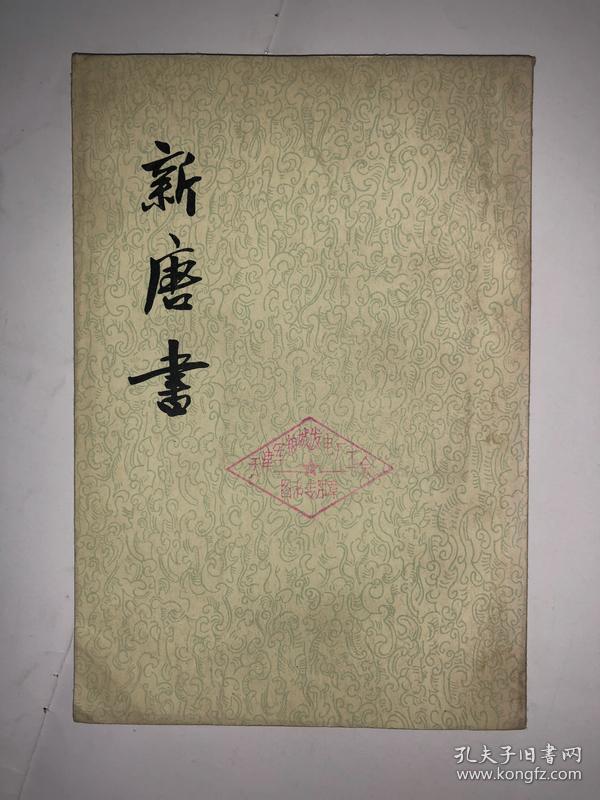 新唐書
天津军粮城发电厂工会
图书专用章
孔夫子旧書网
www.kongfz.com